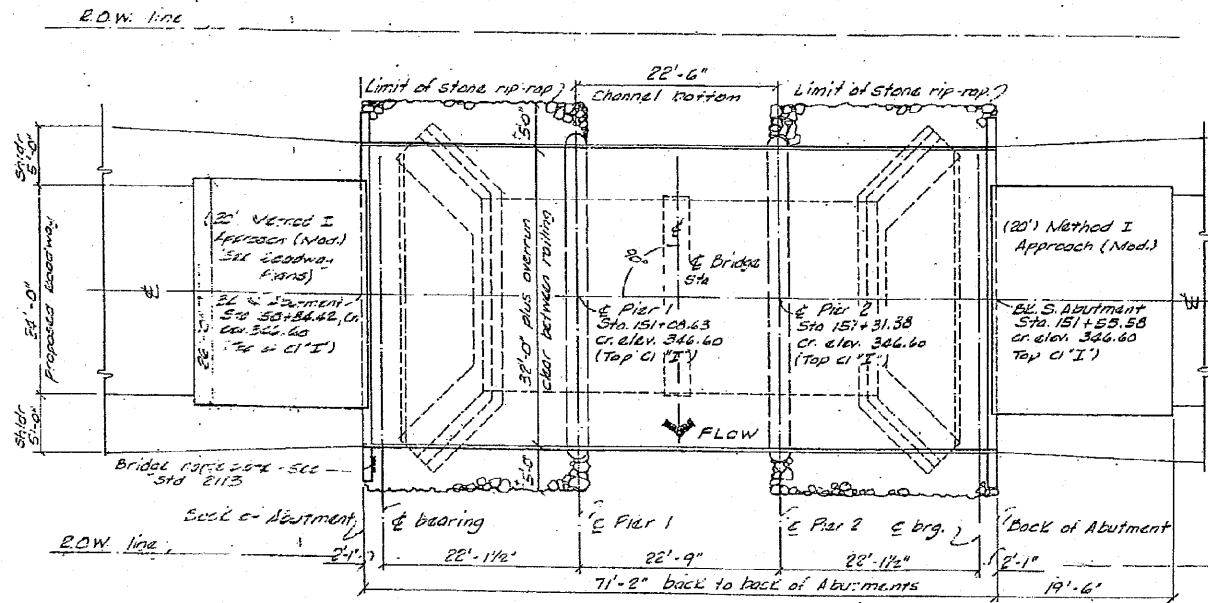 R.O.W. line
22'-6"
Limit of stone rip-rap
Channel bottom
Limit of stone rip-rap
5'-0"
Shldr
5'-0"
24'-0"
Proposed Roadway
Shldr
5'-0"
26'-0"
(20' Method I
Approach (Mod.)
See Roadway
Plans)
Abutment
cr.
346.60
(Top Cl "I")
32'-0" plus overrun
clear between railing
5'-0"
℄
℄ Bridge
Sta
℄ Pier 1
Sta. 151+08.63
cr. elev. 346.60
(Top Cl "I")
℄ Pier 2
Sta 151+31.38
cr. elev. 346.60
(Top Cl "I")
(20') Method I
Approach (Mod.)
Bk. S. Abutment
Sta. 151+53.58
cr. elev. 346.60
Top Cl "I")
FLOW
Bridge - See
Std 2113
Back of Abutment
℄ bearing
℄ Pier 1
℄ Pier 2
℄ brg.
Back of Abutment
R.O.W. line
2'-1"
22'-1½"
22'-9"
22'-1½"
2'-1"
71'-2" back to back of Abutments
19'-6"